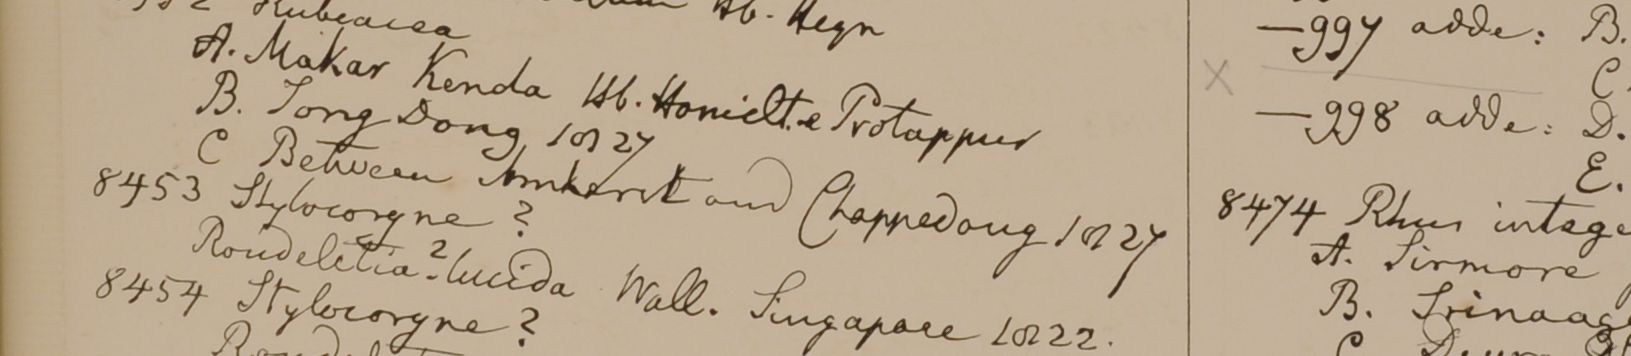 Rubiacea Hb. Heyn
A. Makar Kenda Hb. Hamilt. e Protappur
B. Tong Dong 1827
C Between Amherst and Chappedong 1827
8453 Stylocoryne ?
Rondeletia ? lucida Wall. Singapore 1822.
8454 Stylocoryne ?
—997 adde: B.
C.
—998 adde: D.
E.
8474 Rhus intege
A. Sirmore
B. Srinaag
C